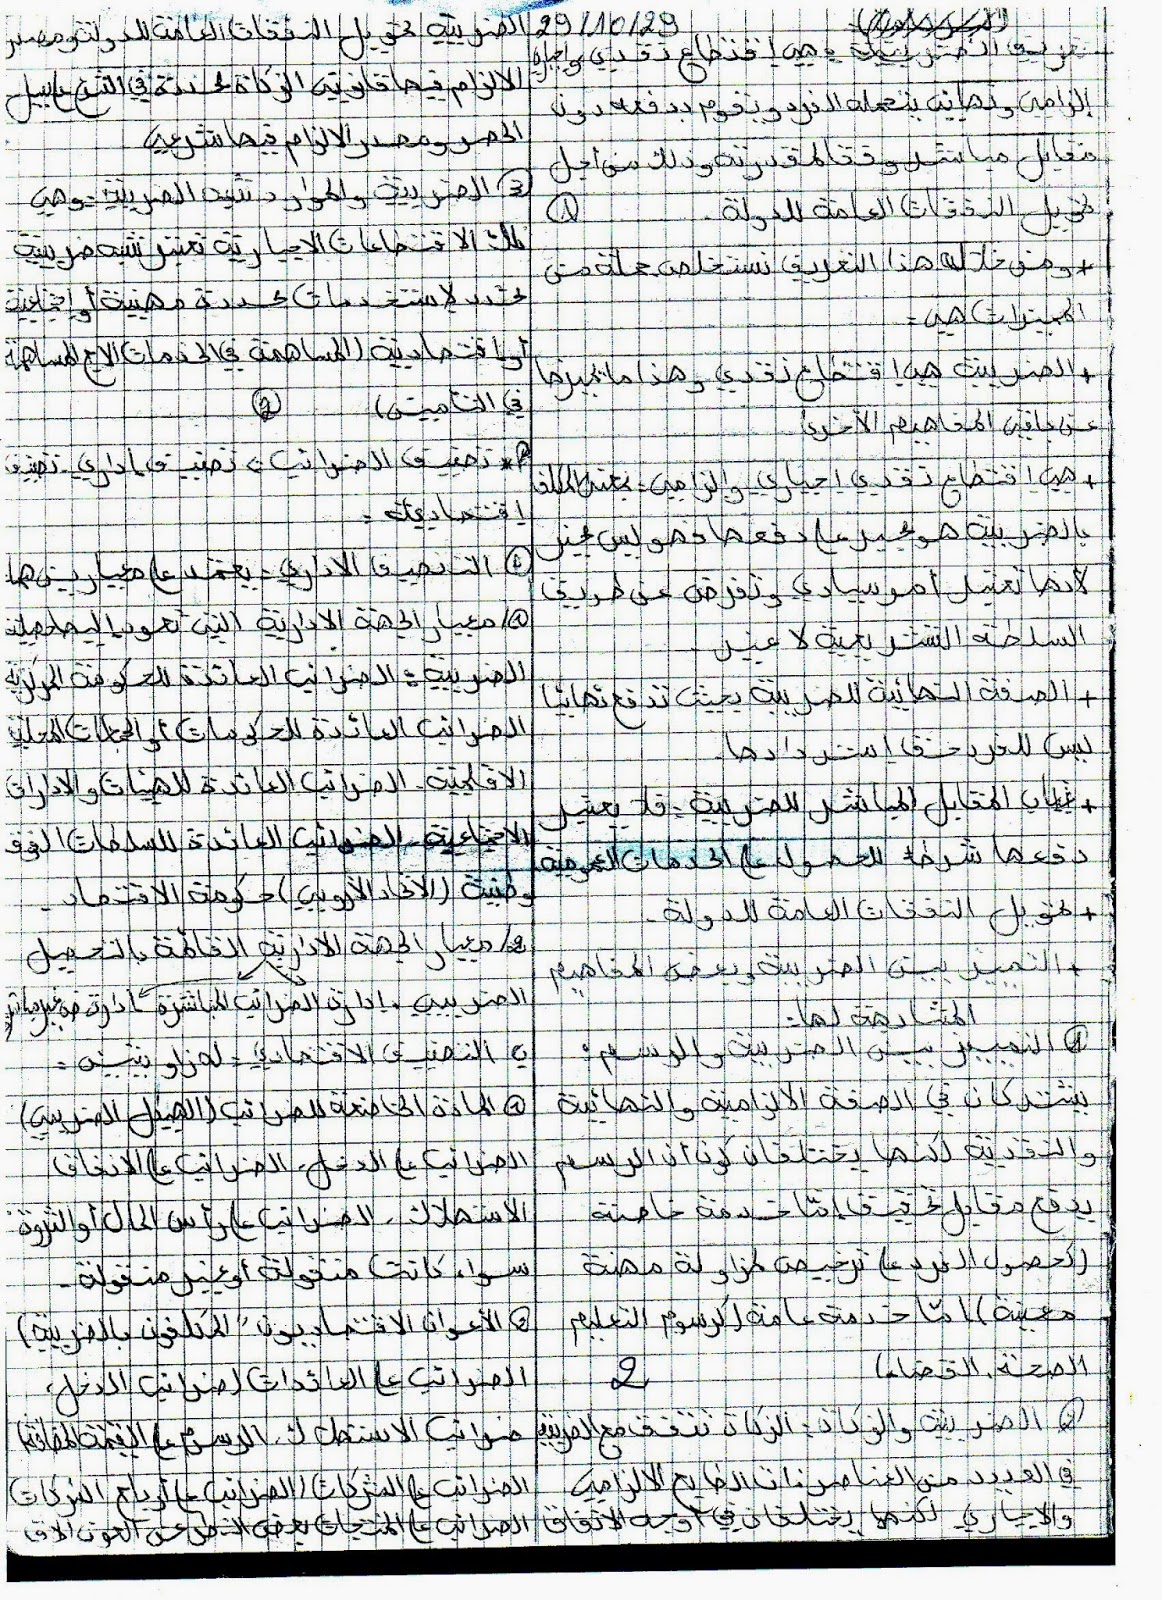 29/10/29
تعريف الضريبة = هي إقتطاع نقدي وإجباري
إلزامي ونهائي يتحمله الفرد ويقوم بدفعه دون
مقابل مباشر وفقا لمقدرته وذلك من أجل
تمويل النفقات العامة للدولة. ①
+ ومن خلال هذا التعريف نستخلص جملة من
المميزات هي =
+ الضريبة هي إقتطاع نقدي وهذا ما يميزها
عن باقي المفاهيم الأخرى
+ هي إقتطاع نقدي إجباري وإلزامي = بمعنى المكلف
بالضريبة هو مجبر على دفعها فهو ليس مخير
لأنها تعتبر أمر سيادي وتفرض عن طريق
السلطة التشريعية لا غير.
+ الصفة النهائية للضريبة بحيث تدفع نهائيا
ليس للفرد حق إستردادها.
+ غياب المقابل المباشر للضريبة - فلا يعتبر
دفعها شرطا للحصول على الخدمات العمومية
+ تمويل النفقات العامة للدولة.
+ التمييز بين الضريبة وبعض المفاهيم
المشابهة لها =
① التمييز بين الضريبة والرسم :
يشتركان في الصفة الالزامية والنهائية
والنقدية لكنها يختلفان كون أن الرسم
يدفع مقابل تحقيق إما خدمة خاصة
(كحصول الفرد على ترخيص لمزاولة مهنة
معينة) اما خدمة عامة (كرسوم التعليم
الصحة. القضاء) 2
② الضريبة والزكاة = الزكاة تتفق مع الضريبة
في العديد من العناصر ذات الطابع الالزامي
والاجباري لكنهما يختلفان في أوجه الانفاق
الضريبة تمويل النفقات العامة للدولة ومصدر
الالزام فيها قانوني الزكاة محددة في الشرع على سبيل
الحصر ومصدر الالزام فيها شرعي
③ الضريبة والموارد شبه الضريبة = وهي
تلك الاقتطاعات الاجبارية تعتبر شبه ضريبية
تحدد لاستخدمات محددة مهنية أو إجتماعية
أو اقتصادية (المساهمة في الخدمات الاج المساهمة
في التأمين) ②
* تصنيف الضرائب = تصنيف إداري - تصنيف
إقتصادي =
التصنيف الاداري = يعتمد على معيارين هما
①/ معيار الجهة الادارية التي تعود إليها حصيلة
الضريبة = الضرائب العائدة للحكومة المركزية
الضرائب العائدة للحكومات أو الجماعات المحلية
الاقليمية. الضرائب العائدة للهيئات والادارات
الاجتماعية. الضرائب العائدة للسلطات الفوق
وطنية (الاتحاد الأروبي) حكومة الاقتصاد.
2/ معيار الجهة الادارية القائمة بالتحصيل
الضريبي. إدارة الضرائب المباشرة - إدارة ض غير مباشر
ب التصنيف الاقتصادي = لهزاويتين =
① المادة الخاضعة للضرائب (الهيكل الضريبي)
الضرائب على الدخل، الضرائب على الانفاق
الاستهلاك. الضرائب على رأس المال أو الثروة
سواء كانت منقولة أو غير منقولة.
② الأعوان الاقتصاديون "المكلفون بالضريبة)
الضرائب على العائدات (ضرائب الدخل،
ضرائب الاستهلاك. الرسوم على القيمة المضافة)
الضرائب على الشركات (الضرائب على أرباح الشركات
الضرائب على المنتجات بغض النظر عن العون الاق